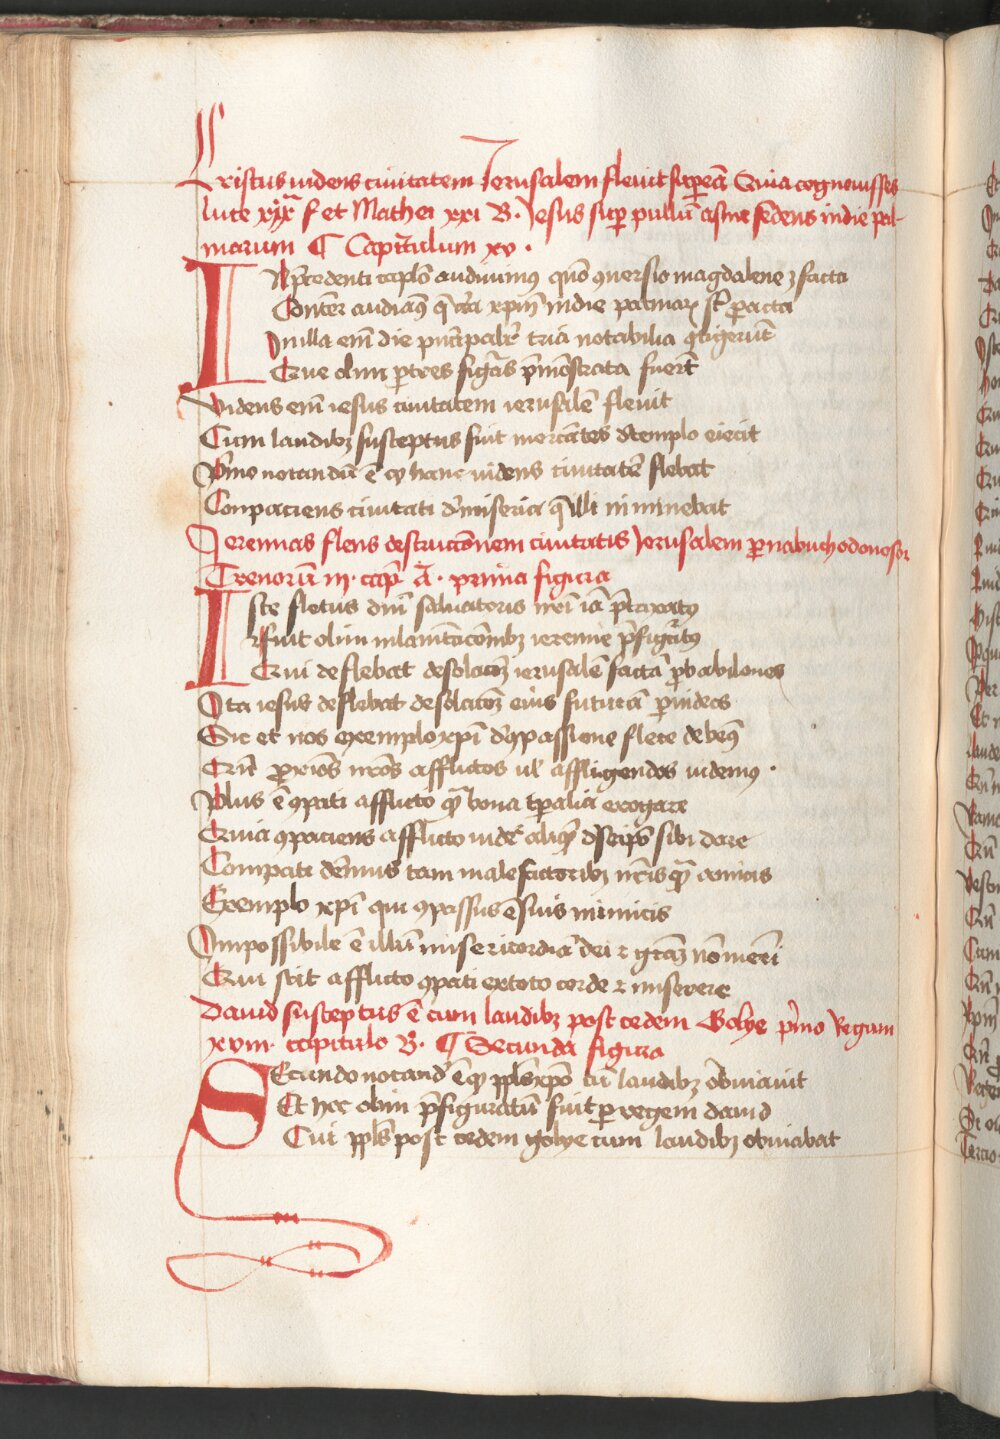 Cristus uidens ciuitatem Jerusalem fleuit sup eam Quia cognouisses
luce xix f et Mathei xxi B. Jesus sup pullū asine sedens in die pal-
marum ¶ Capitulum xv.
IN p̄cedenti capło audiuimus quō ꝯuersio magdalene ꝫ facta
Conter audiam9 q̄ circa xpm̄ in die palmaꝝ st̄ pacta
In illa em̄ die pͥncipalr̄ tria notabilia ꝯtigerūt
Que olim p tres figuras p̄monstrata fuerūt
Videns em̄ iesus ciuitatem ierusalē fleuit
Cum laudibꝫ susceptus fuit mercātes de templo eiecit
Pͥmo notandū ē qꝫ hanc uidens ciuitatē flebat
Conpaciens ciuitati de miseria q̄ illi in minebat
Jeremias flens destructionem ciuitatis Jerusalem per nabuchodonosor
Trenorū m. cap̄ A. prima figura
Iste fletus dnī saluatoris nr̄i iā p̄taxatꝰ
Fuit olim in lamentacōibꝫ ieremie p̄figuratꝰ
Qui deflebat desolacōꝫ ierusalē factā p babilones
Ita iesus deflebat desolacōꝫ eius futurā p iudeos
Sic et nos exemplo xpī ꝯpassione flere debemꝰ
Qn̄ proximos nr̄os afflictos ul̄ affligendos uidemus.
Plus ē ꝯpati afflicto qͣ bona tpalia erogare
Quia ꝯpaciens afflicto uidet̄ aliqͥd de seipso sibi dare
Compati debemus tam malefactoribꝫ nr̄is qͣ amicis
Exemplo xpī qui ꝯpassus ē suis inimicis
Inpossibile ē illum misericordiā dei ⁊ graꝫ nō mereri
Qui scit afflicto ꝯpati ex toto corde ⁊ miserere
Dauid susceptus ē cum laudibꝫ post cedem Golye pͥmo Regum
xviii. capitulo B. ¶ Secunda figura
Secundo notand ē qꝫ ppls xpō cū laudibꝫ obuiauit
Et hoc olim p̄figuratū fuit per regem dauid
Cui ppls post cedem golye cum laudibꝫ obuiabat